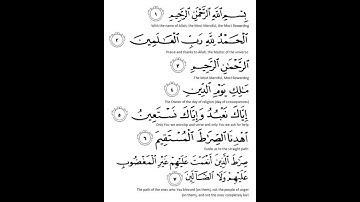 بِسْمِ اللَّهِ الرَّحْمَٰنِ الرَّحِيمِ ١
With the name of Allah, the Most Merciful, the Most Rewarding
الْحَمْدُ لِلَّهِ رَبِّ الْعَالَمِينَ ٢
Praise and thanks to Allah, the Master of the universe
الرَّحْمَٰنِ الرَّحِيمِ ٣
The Most Merciful, the Most Rewarding
مَالِكِ يَوْمِ الدِّينِ ٤
The Owner of the day of religion (day of consequences)
إِيَّاكَ نَعْبُدُ وَإِيَّاكَ نَسْتَعِينُ ٥
Only You we worship and serve and only You we ask for help
اهْدِنَا الصِّرَاطَ الْمُسْتَقِيمَ ٦
Guide us to the straight path
صِرَاطَ الَّذِينَ أَنْعَمْتَ عَلَيْهِمْ غَيْرِ الْمَغْضُوبِ
عَلَيْهِمْ وَلَا الضَّالِّينَ ٧
The path of the ones who You blessed (on them), not the people of anger
(on them), and not the ones completely lost